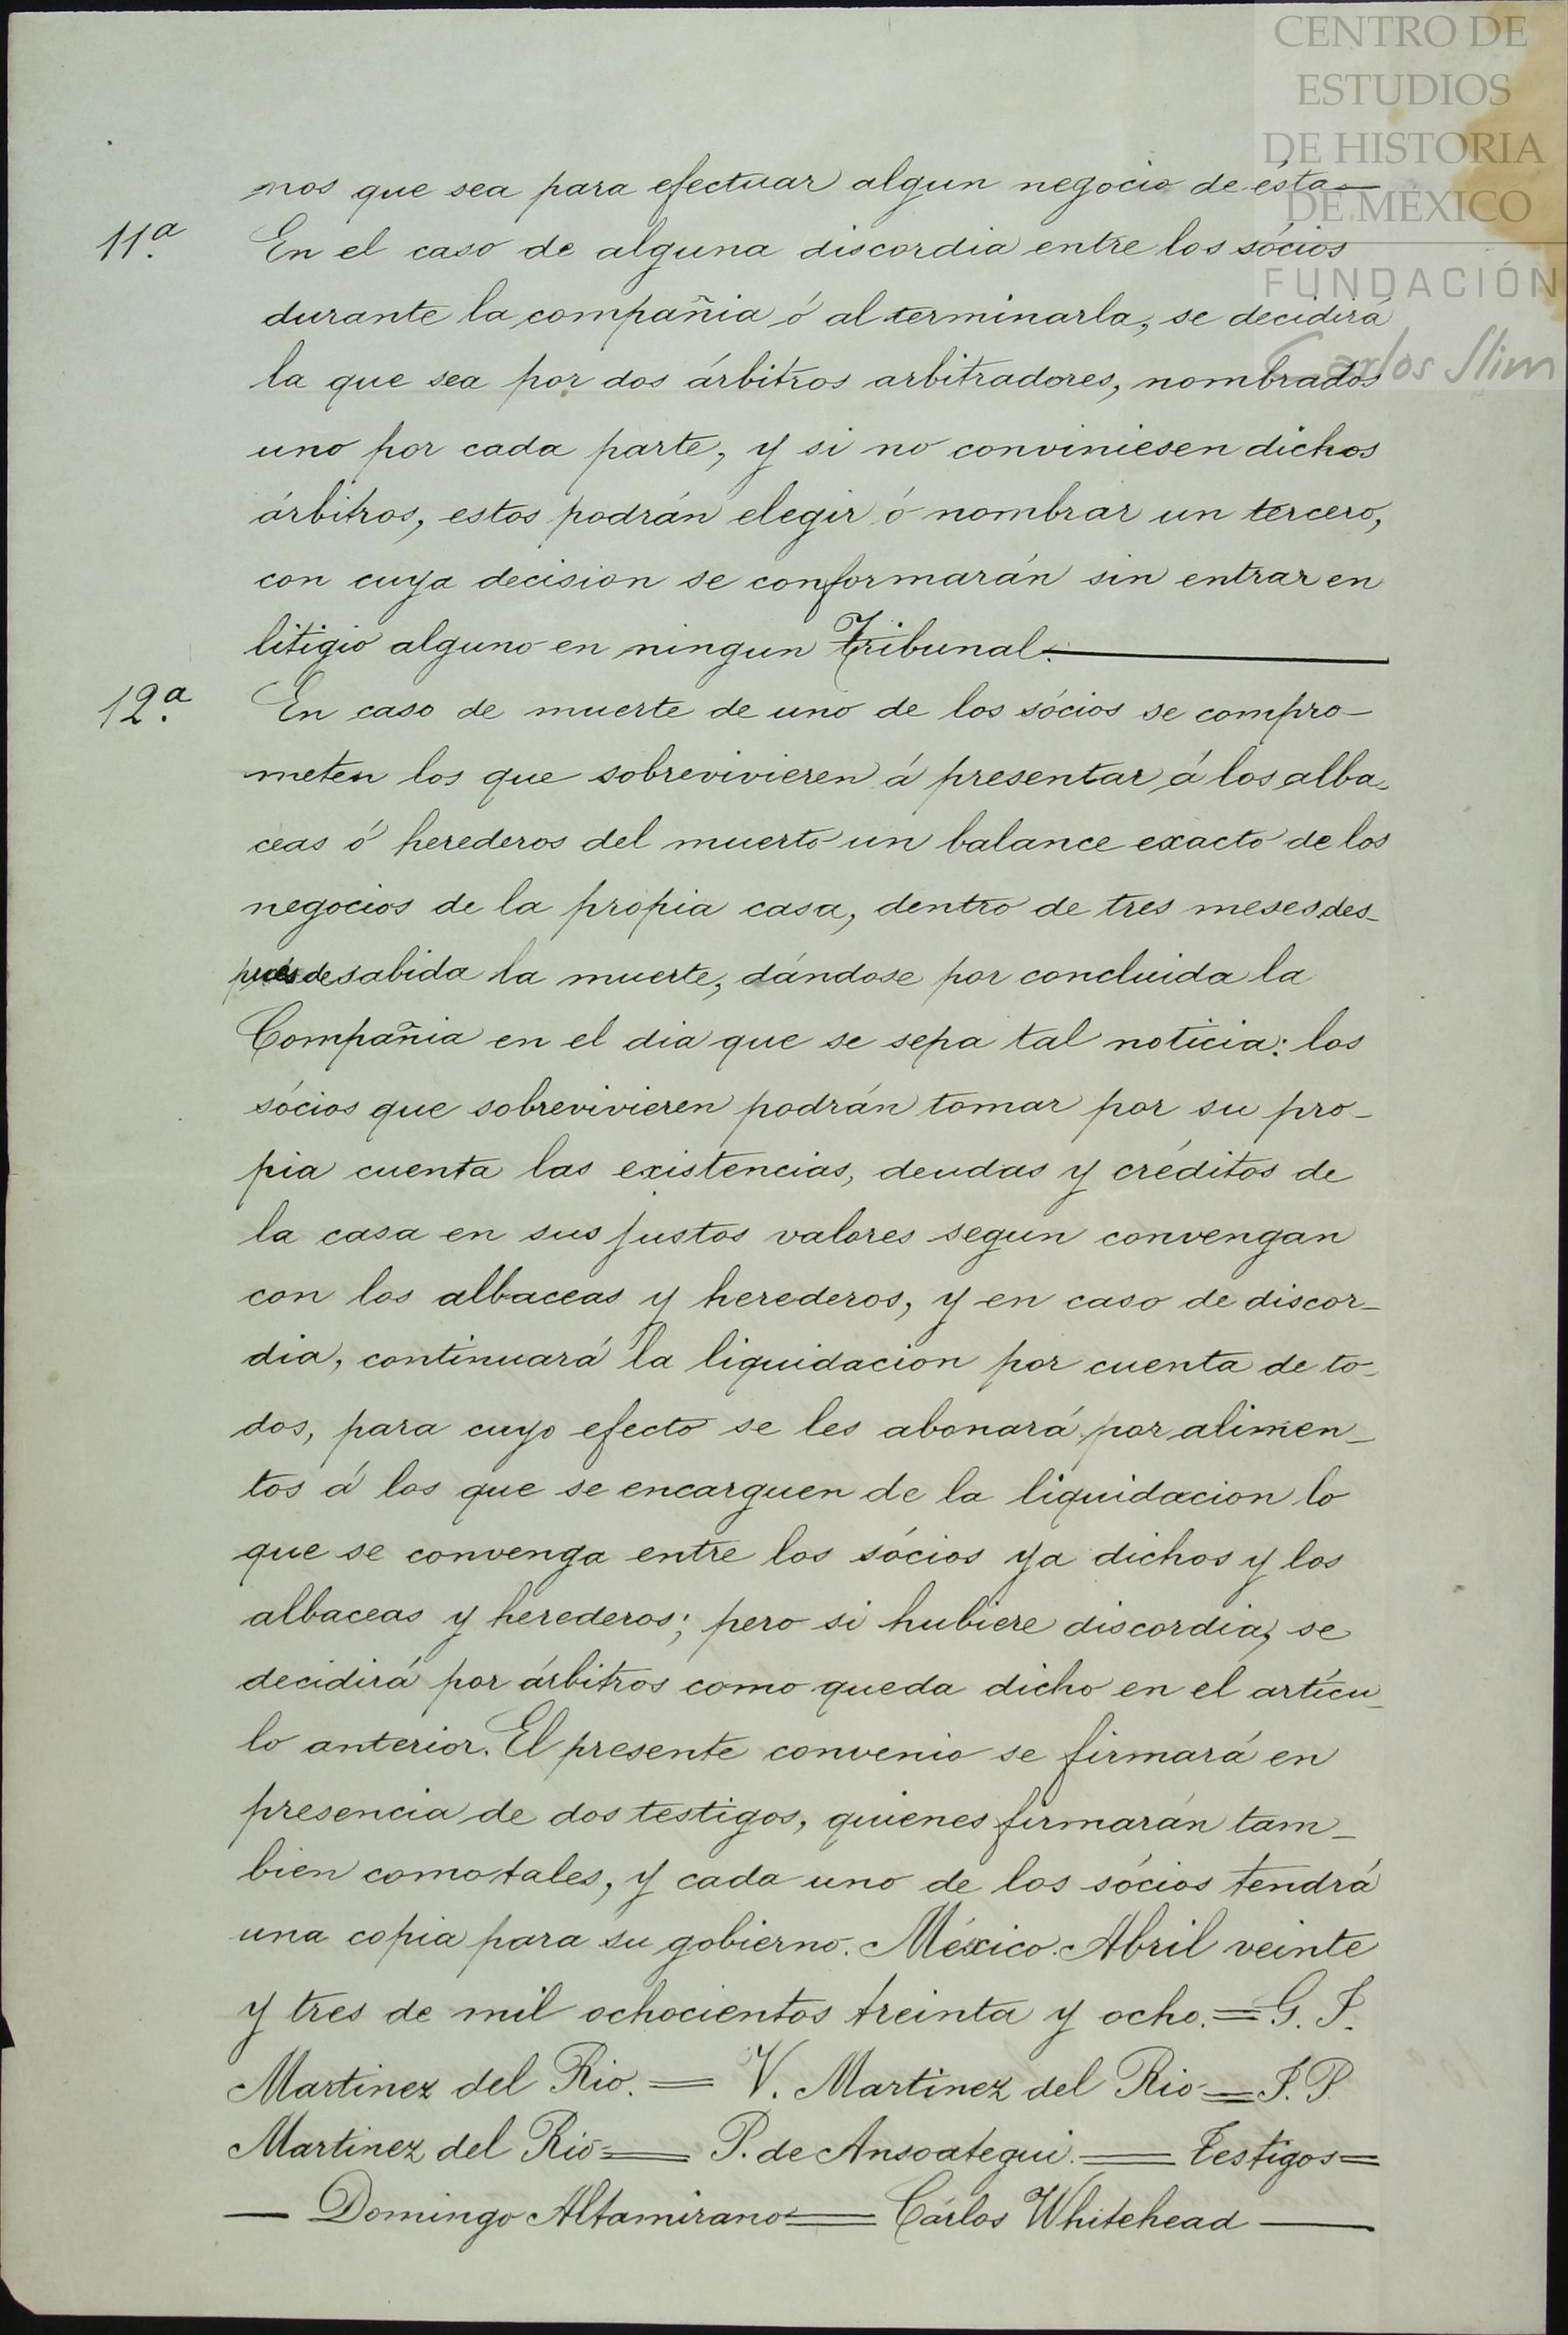 CENTRO DE
ESTUDIOS
DE HISTORIA
DE MÉXICO
FUNDACIÓN
Carlos Slim
nos que sea para efectuar algun negocio de ésta—
11.ª En el caso de alguna discordia entre los sócios
durante la compañia ó al terminarla, se decidirá
la que sea por dos árbitros arbitradores, nombrados
uno por cada parte, y si no conviniesen dichos
árbitros, estos podrán elegir ó nombrar un tercero,
con cuya decision se conformarán sin entrar en
litigio alguno en ningun Tribunal.—
12.ª En caso de muerte de uno de los sócios se compro-
meten los que sobrevivieren á presentar á los alba-
ceas ó herederos del muerto un balance exacto de los
negocios de la propia casa, dentro de tres meses des-
pues de sabida la muerte, dándose por concluida la
Compañia en el dia que se sepa tal noticia: los
sócios que sobrevivieren podrán tomar por su pro-
pia cuenta las existencias, deudas y créditos de
la casa en sus justos valores segun convengan
con los albaceas y herederos, y en caso de discor-
dia, continuará la liquidacion por cuenta de to-
dos, para cuyo efecto se les abonará por alimen-
tos á los que se encarguen de la liquidacion lo
que se convenga entre los sócios ya dichos y los
albaceas y herederos; pero si hubiere discordia, se
decidirá por árbitros como queda dicho en el artícu-
lo anterior. El presente convenio se firmará en
presencia de dos testigos, quienes firmarán tam-
bien como tales, y cada uno de los sócios tendrá
una copia para su gobierno. México. Abril veinte
y tres de mil ochocientos treinta y ocho.=G. J.
Martinez del Rio.= V. Martinez del Rio=J. P.
Martinez del Rio= P. de Ansoategui.= Testigos=
— Domingo Altamirano= Cárlos Whitehead —